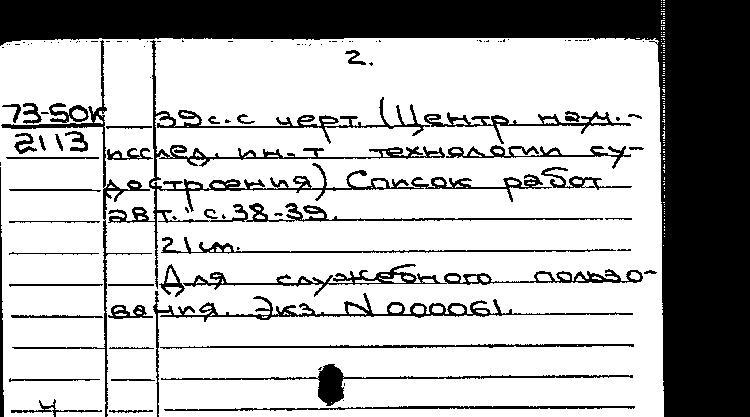 2.
73-50к 39 с. с черт. (Центр. науч.-
2113
исслед. ин-т технологии су-
достроения). Список работ
авт.: с. 38-39.
21 см.
Для служебного пользо-
вания. Экз. N 000061.
4